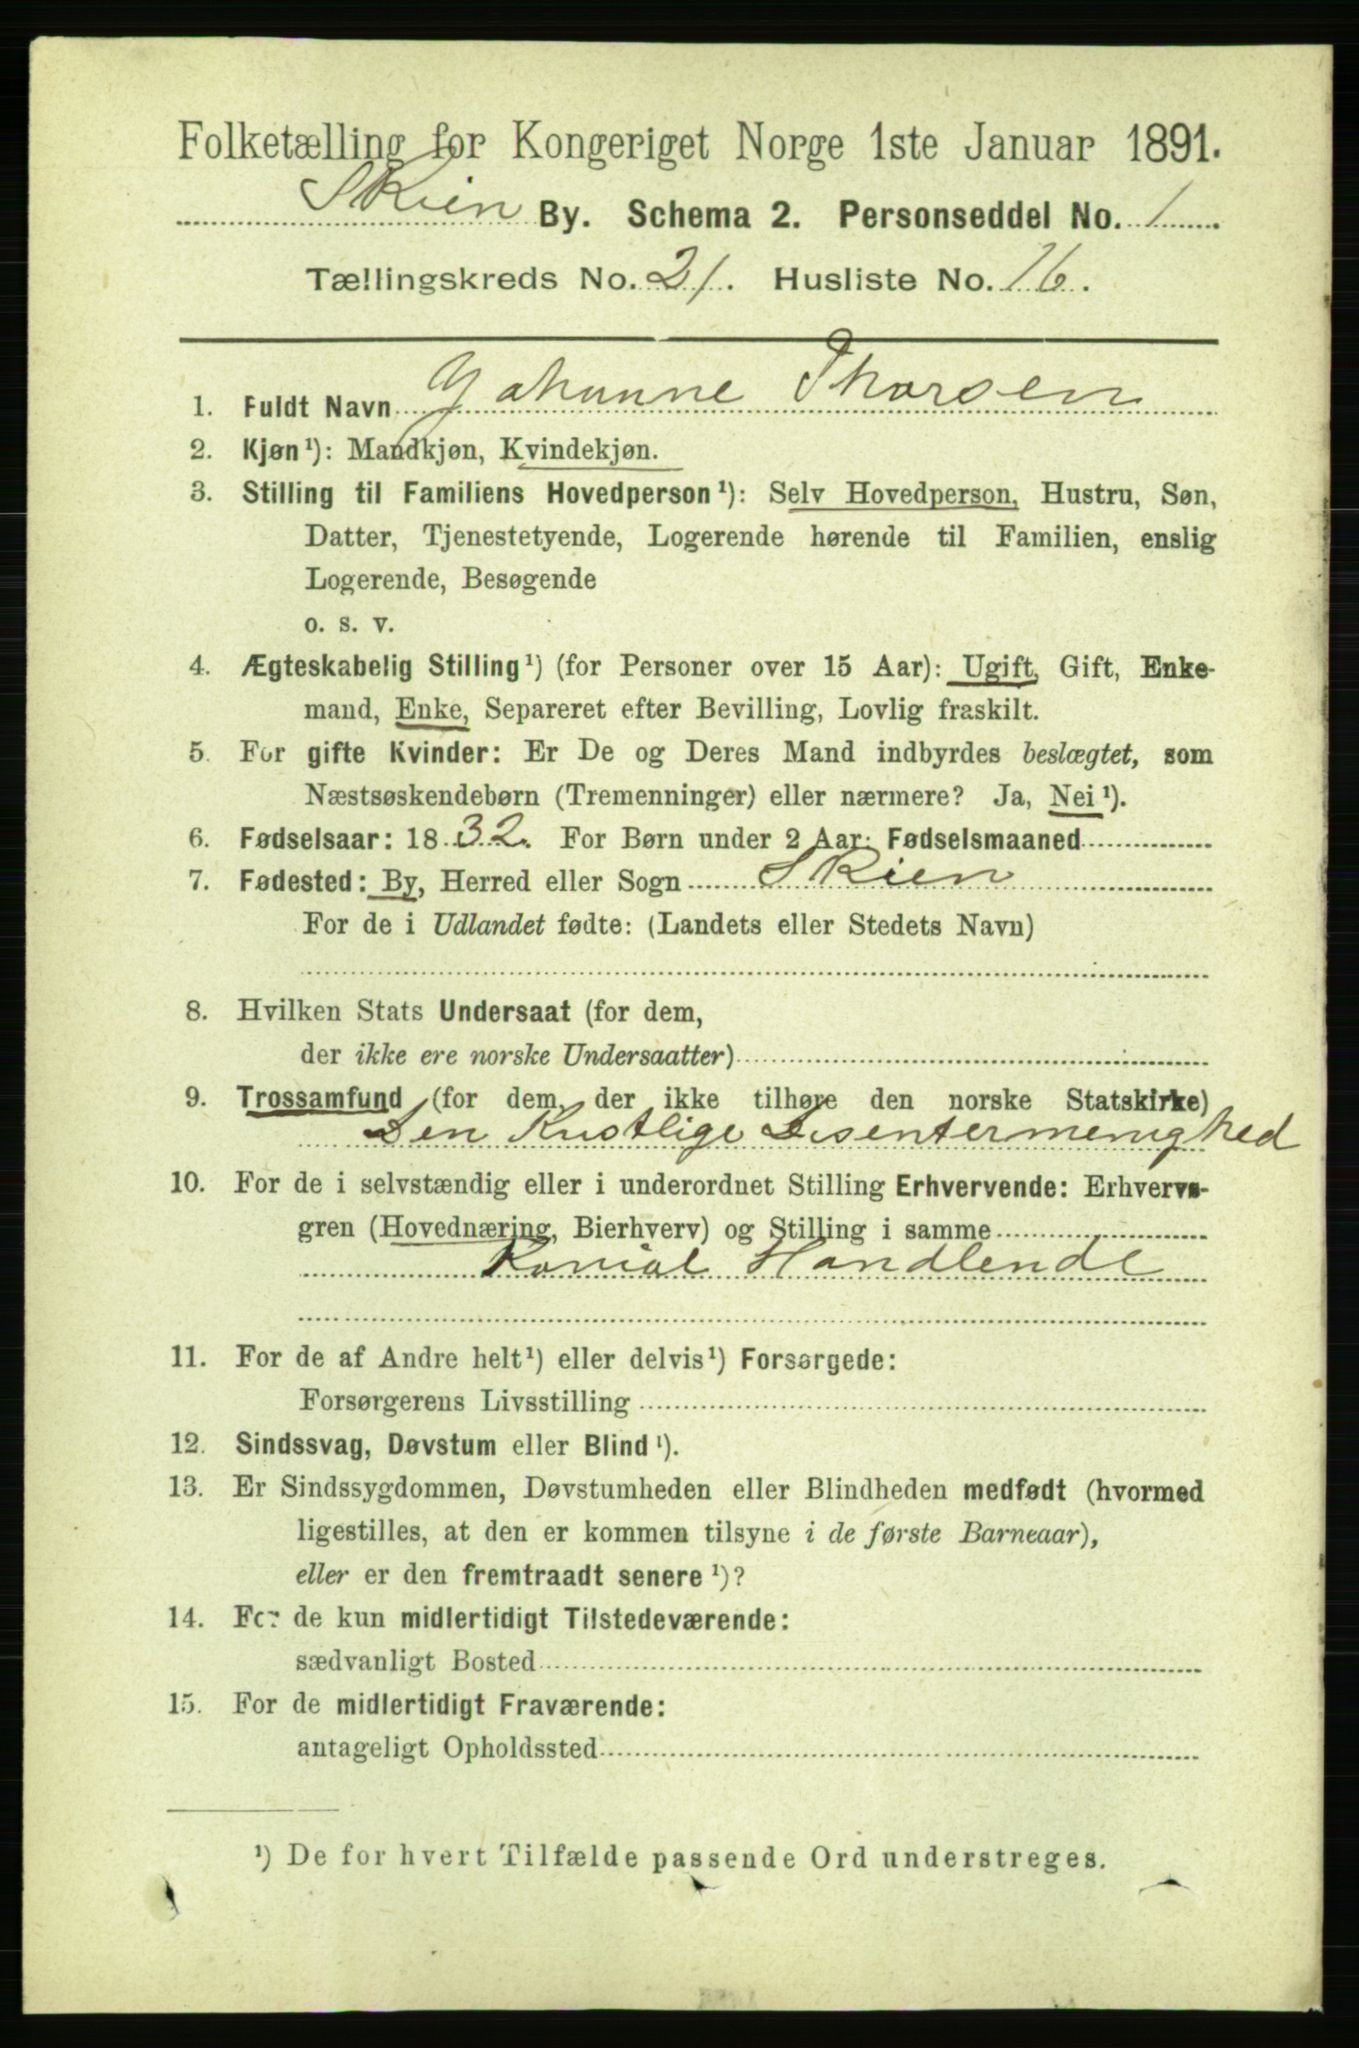 Folketælling for Kongeriget Norge 1ste Januar 1891.
Skien By. Schema 2. Personseddel No. 1
Tællingskreds No. 21. Husliste No. 16.
1. Fuldt Navn Johanne Thorsen
2. Kjøn¹): Mandkjøn, Kvindekjøn.
3. Stilling til Familiens Hovedperson¹): Selv Hovedperson, Hustru, Søn,
Datter, Tjenestetyende, Logerende hørende til Familien, enslig
Logerende, Besøgende
o. s. v.
4. Ægteskabelig Stilling¹) (for Personer over 15 Aar): Ugift, Gift, Enke-
mand, Enke, Separeret efter Bevilling, Lovlig fraskilt.
5. For gifte Kvinder: Er De og Deres Mand indbyrdes beslægtet, som
Næstsøskendebørn (Tremenninger) eller nærmere? Ja, Nei¹).
6. Fødselsaar: 1832. For Børn under 2 Aar: Fødselsmaaned
7. Fødested: By, Herred eller Sogn Skien
For de i Udlandet fødte: (Landets eller Stedets Navn)
8. Hvilken Stats Undersaat (for dem,
der ikke ere norske Undersaatter)
9. Trossamfund (for dem, der ikke tilhøre den norske Statskirke)
Den Kristlige Disentermenighed
10. For de i selvstændig eller i underordnet Stilling Erhvervende: Erhvervs-
gren (Hovednæring, Bierhverv) og Stilling i samme
Konial Handlende
11. For de af Andre helt¹) eller delvis¹) Forsørgede:
Forsørgerens Livsstilling
12. Sindssvag, Døvstum eller Blind¹).
13. Er Sindssygdommen, Døvstumheden eller Blindheden medfødt (hvormed
ligestilles, at den er kommen tilsyne i de første Barneaar),
eller er den fremtraadt senere¹)?
14. For de kun midlertidigt Tilstedeværende:
sædvanligt Bosted
15. For de midlertidigt Fraværende:
antageligt Opholdssted
¹) De for hvert Tilfælde passende Ord understreges.